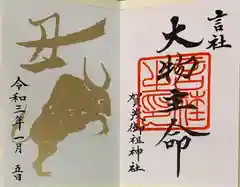 言社
大物主命
賀茂御祖神社
丑
令和三年一月五日